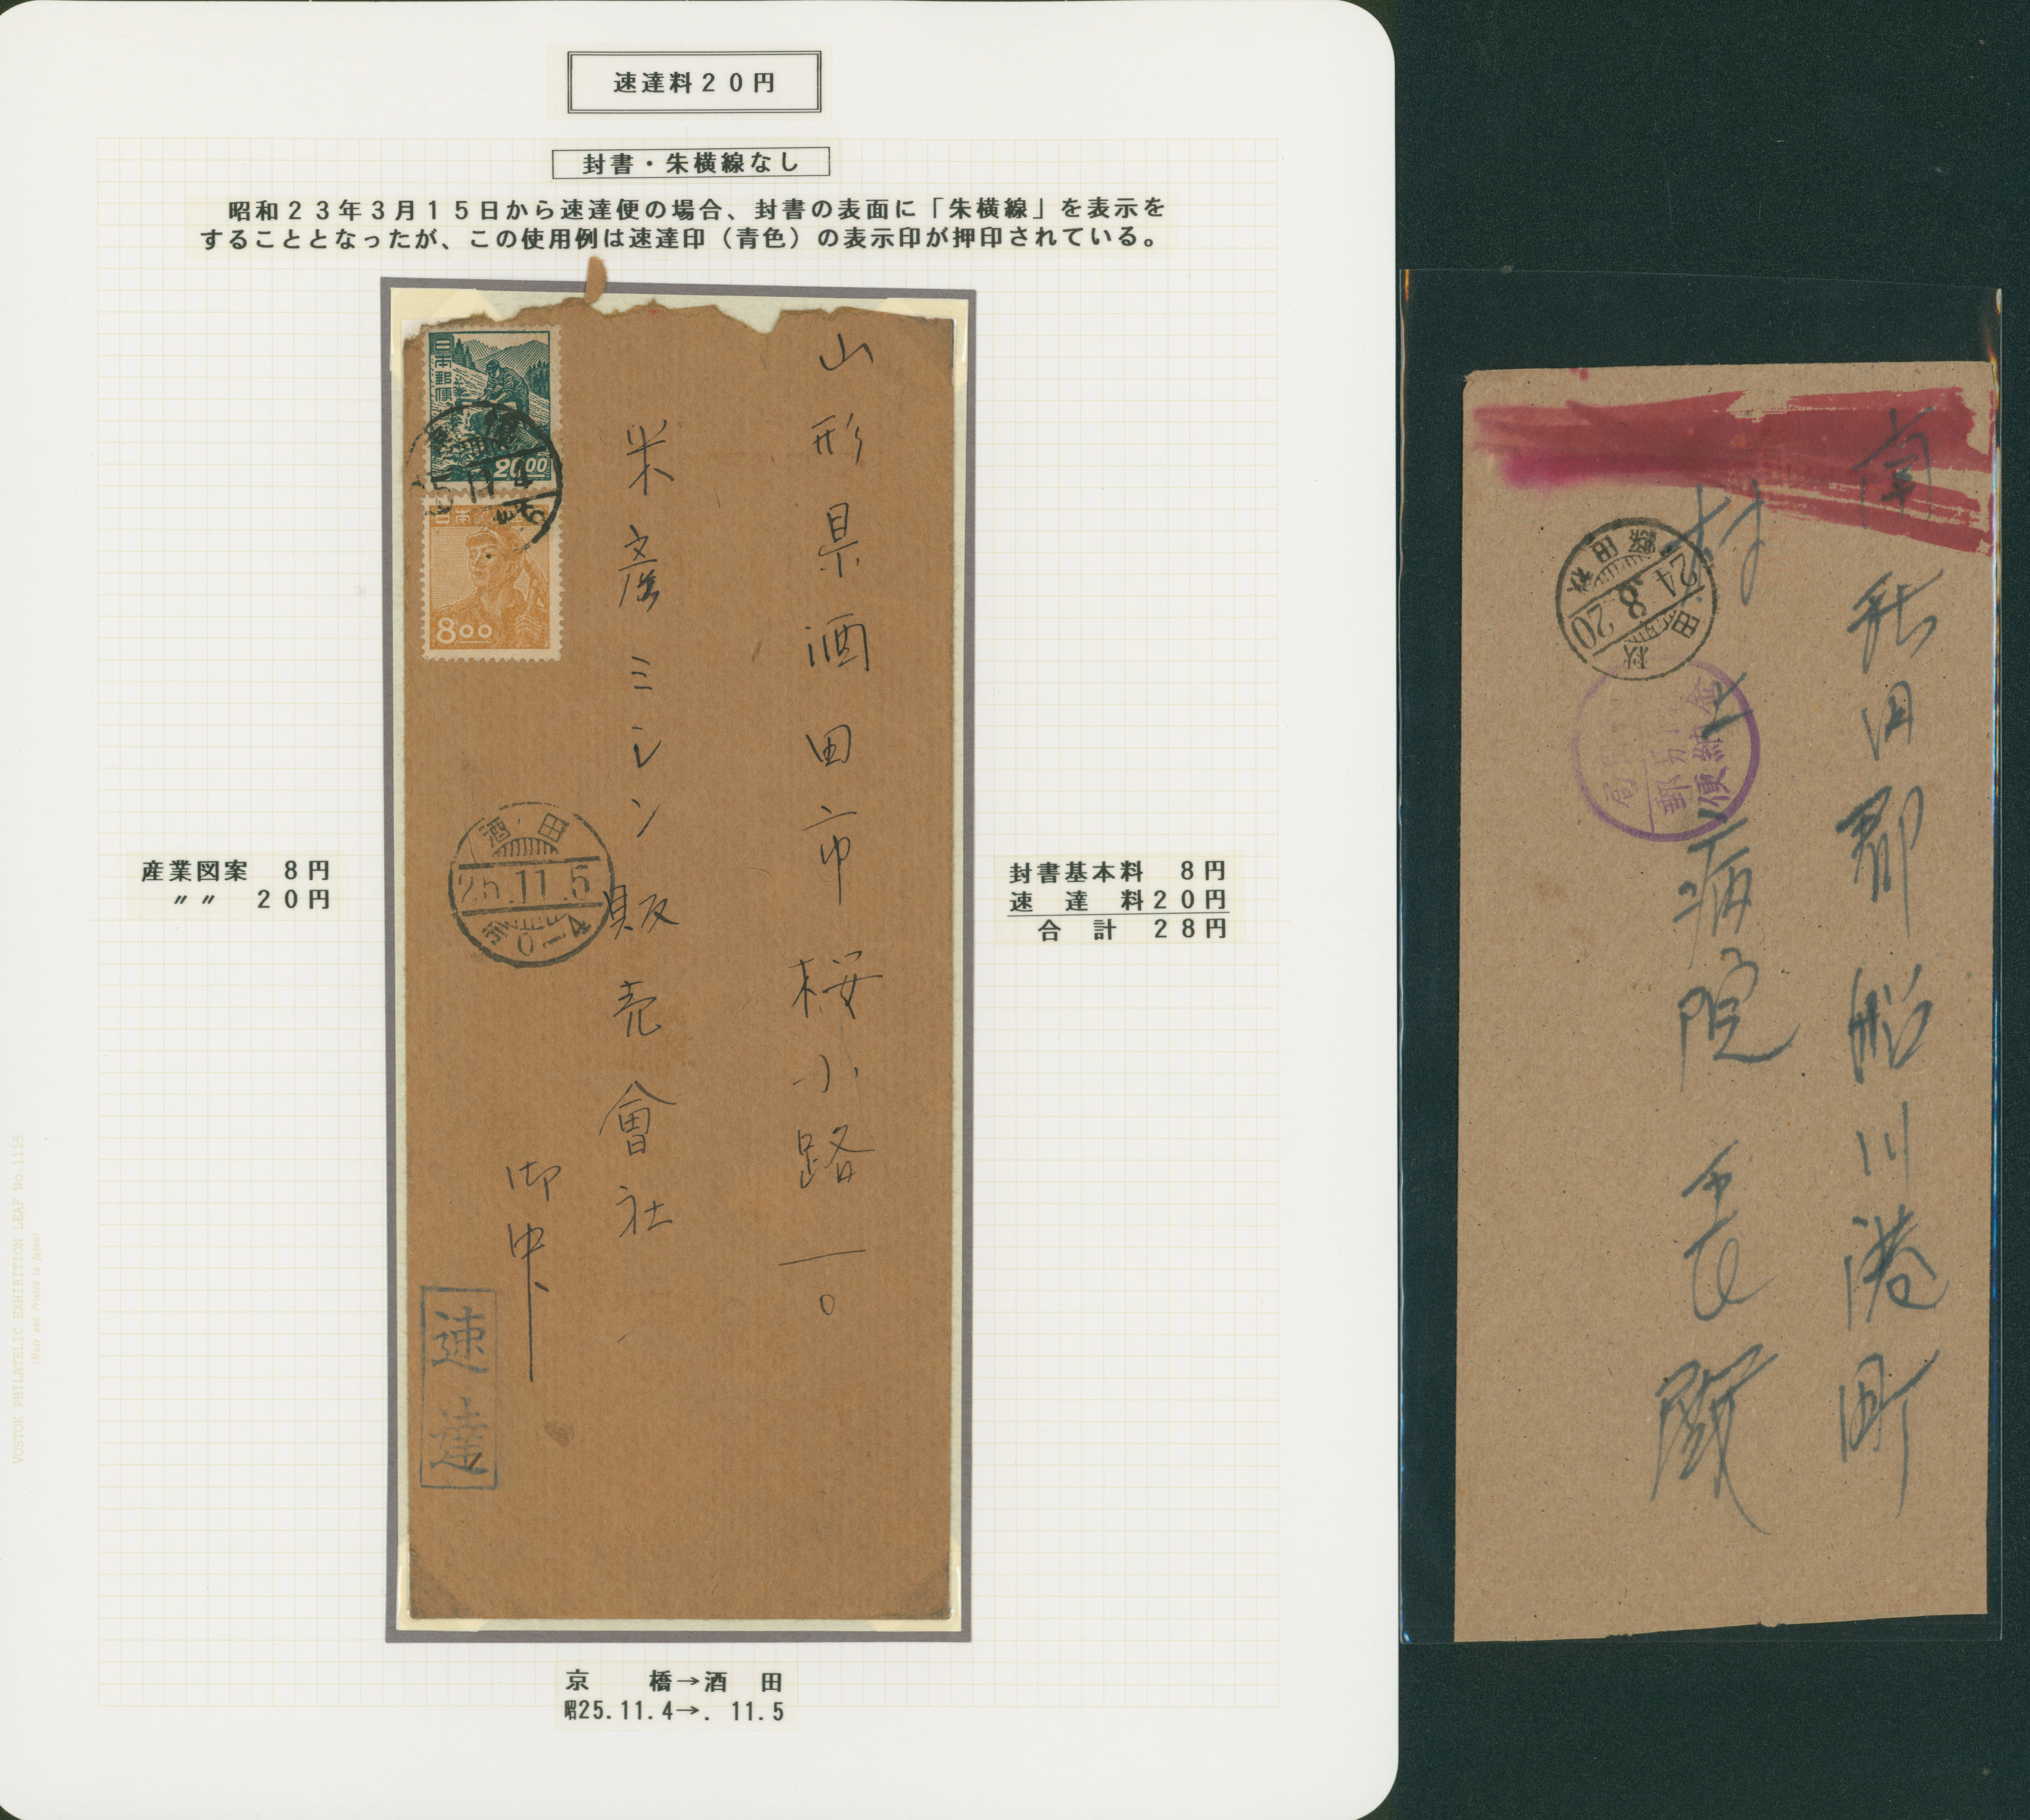 速達料20円
封書・朱横線なし
昭和23年3月15日から速達便の場合、封書の表面に「朱横線」を表示を
することとなったが、この使用例は速達印(青色)の表示印が押印されている。
山形県酒田市桜小路一〇
米産ミシン販売會社
御中
日本郵便
20.00
25.11.4
日本
8.00
酒田
25.11.5
速達
産業図案 8円
〃〃 20円
封書基本料 8円
速達料20円
合計 28円
京橋→酒田
昭25.11.4→. 11.5
VOSTOK PHILATELIC EXHIBITION LEAF No.1115
(Made and Printed in Japan)
南秋田郡船川港町
村上病院長殿
秋田
24.8.20
秋田縣
料金
郵便